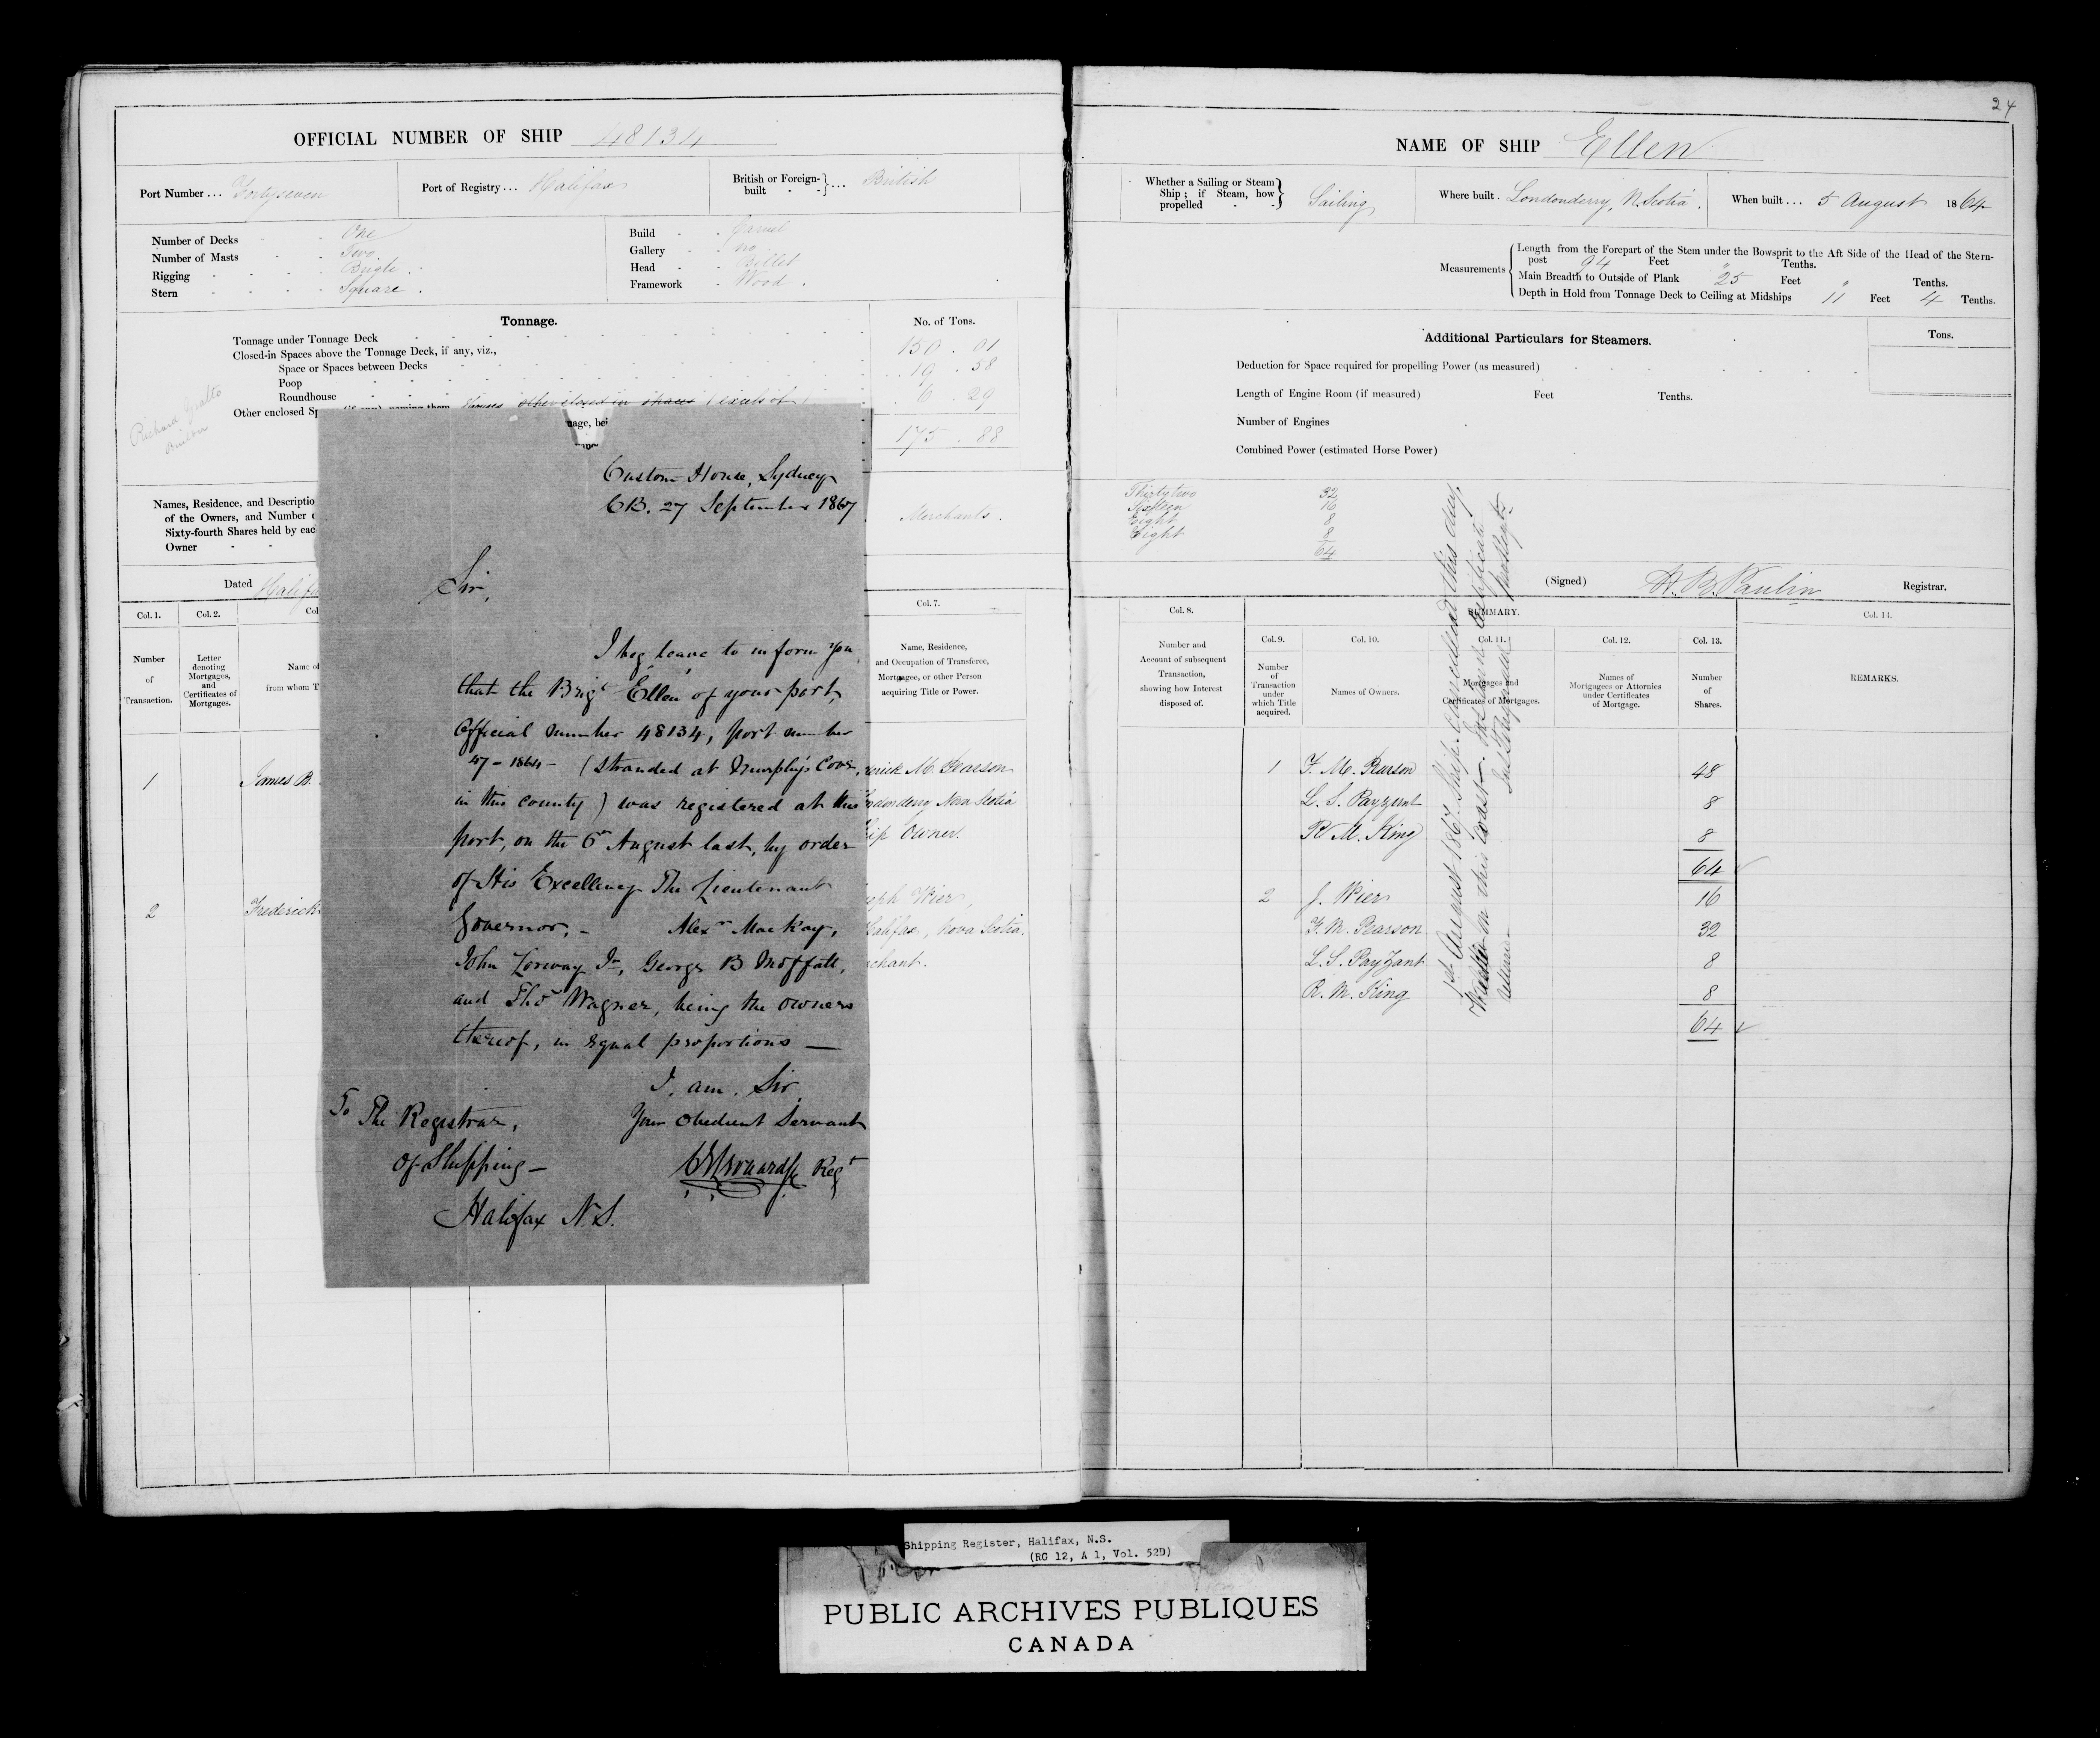 OFFICIAL NUMBER OF SHIP 48134
Port Number ... Fortyseven
Port of Registry ... Halifax
British or Foreign-built } ... British
Number of Decks - - One
Number of Masts - - Two
Rigging - - - - Brigte.
Stern - - - - Square.
Build - - Carvel
Gallery - - no
Head - - Billet
Framework - Wood.
Tonnage.
No. of Tons.
Tonnage under Tonnage Deck 150 . 01
Closed-in Spaces above the Tonnage Deck, if any, viz.,
Space or Spaces between Decks
Poop 19 . 58
Roundhouse 6 . 29
Other enclosed Sp
nage, bei
175 . 88
Richard
Names, Residence, and Descriptio
of the Owners, and Number o
Sixty-fourth Shares held by eac
Owner - -
Merchants.
Dated Halifa
Col. 1.
Col. 2.
Col
Col. 7.
Number of Transaction.
Letter denoting Mortgages, and Certificates of Mortgages.
Name of
from whom T
Name, Residence, and Occupation of Transferee, Mortgagee, or other Person acquiring Title or Power.
1 James B.
erick M. Pearson
ndonderry Nova Scotia
ip Owner.
2 Frederick
seph Wier,
Halifax, Nova Scotia.
rchant.
Custom House, Sydney
CB. 27 September 1867
Sir,
I beg leave to inform you,
that the Brigt "Ellen" of your port,
Official number 48134, port number
47 - 1864 - (stranded at Murphy's Cove,
in this county) was registered at this
port, on the 6th August last, by order
of His Excellency The Lieutenant
Governor, - Alexr MacKay,
John Lorway Jr, George B Moffatt,
and Thos Wagner, being the owners
thereof, in equal proportions —
I am. Sir,
Your Obedient Servant
Regr
To The Registrar,
of Shipping —
Halifax N.S.
24
NAME OF SHIP Ellen
Whether a Sailing or Steam Ship; if Steam, how propelled - - } Sailing
Where built. Londonderry, N. Scotia.
When built ... 5 August 1864
Measurements
Length from the Forepart of the Stem under the Bowsprit to the Aft Side of the Head of the Stern-
post 94 Feet " Tenths.
Main Breadth to Outside of Plank 25 Feet " Tenths.
Depth in Hold from Tonnage Deck to Ceiling at Midships 11 Feet 4 Tenths.
Additional Particulars for Steamers.
Tons.
Deduction for Space required for propelling Power (as measured)
Length of Engine Room (if measured) Feet Tenths.
Number of Engines
Combined Power (estimated Horse Power)
Thirtytwo 32
Sixteen 16
Eight 8
Eight 8
64
(Signed) H. B. Paulin Registrar.
Col. 8.
SUMMARY.
Col. 14.
Number and Account of subsequent Transaction, showing how Interest disposed of.
Col. 9.
Col. 10.
Col. 11.
Col. 12.
Col. 13.
Number of Transaction under which Title acquired.
Names of Owners.
Mortgages and Certificates of Mortgages.
Names of Mortgagees or Attornies under Certificates of Mortgage.
Number of Shares.
REMARKS.
1 F. M. Pearson 48
L. S. Payzant 8
R M. King 8
64
2 J. Wier 16
F. M. Pearson 32
L. S. PayZant 8
R. M. King 8
64
1st August 1867. Ship cancelled this day.
Wrecked on this Coast.
Shipping Register, Halifax, N.S.
(RG 12, A 1, Vol. 52D)
PUBLIC ARCHIVES PUBLIQUES
CANADA